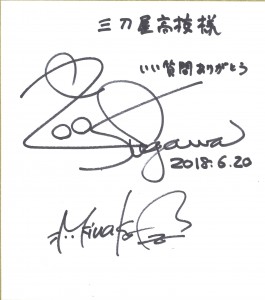 三刀屋高校様
いい質問ありがとう
Sugawa
2018.6.20